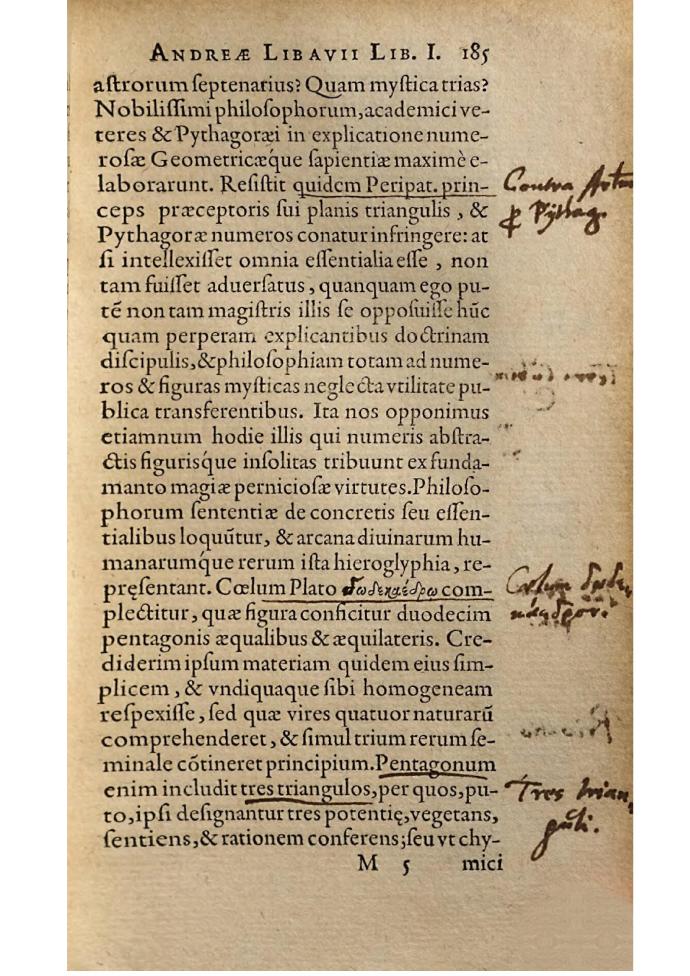 ANDREÆ LIBAVII LIB. I. 185
aſtrorum ſeptenarius? Quam myſtica trias?
Nobiliſſimi philoſophorum, academici ve-
teres & Pythagoræi in explicatione nume-
roſæ Geometricæque ſapientiæ maximè e-
laborarunt. Reſiſtit quidem Peripat. prin-
Contra
ceps præceptoris ſui planis triangulis, &
Pythag.
Pythagoræ numeros conatur infringere: at
ſi intellexiſſet omnia eſſentialia eſſe, non
tam fuiſſet aduerſatus, quanquam ego pu-
tē non tam magiſtris illis ſe oppoſuiſſe hūc
quam perperam explicantibus doctrinam
diſcipulis, & philoſophiam totam ad nume-
ros & figuras myſticas neglecta vtilitate pu-
blica transferentibus. Ita nos opponimus
etiamnum hodie illis qui numeris abſtra-
ctis figurisque inſolitas tribuunt ex funda-
manto magiæ pernicioſæ virtutes. Philoſo-
phorum ſententiæ de concretis ſeu eſſen-
tialibus loquūtur, & arcana diuinarum hu-
manarumque rerum iſta hieroglyphia, re-
pręſentant. Cœlum Plato δωδεκαέδρῳ com-
plectitur, quæ figura conficitur duodecim
pentagonis æqualibus & æquilateris. Cre-
diderim ipſum materiam quidem eius ſim-
plicem, & vndiquaque ſibi homogeneam
reſpexiſſe, ſed quæ vires quatuor naturarū
comprehenderet, & ſimul trium rerum ſe-
minale cōtineret principium. Pentagonum
enim includit tres triangulos, per quos, pu-
Tres trian
to, ipſi deſignantur tres potentię, vegetans,
guli.
ſentiens, & rationem conferens; ſeu vt chy-
M 5 mici